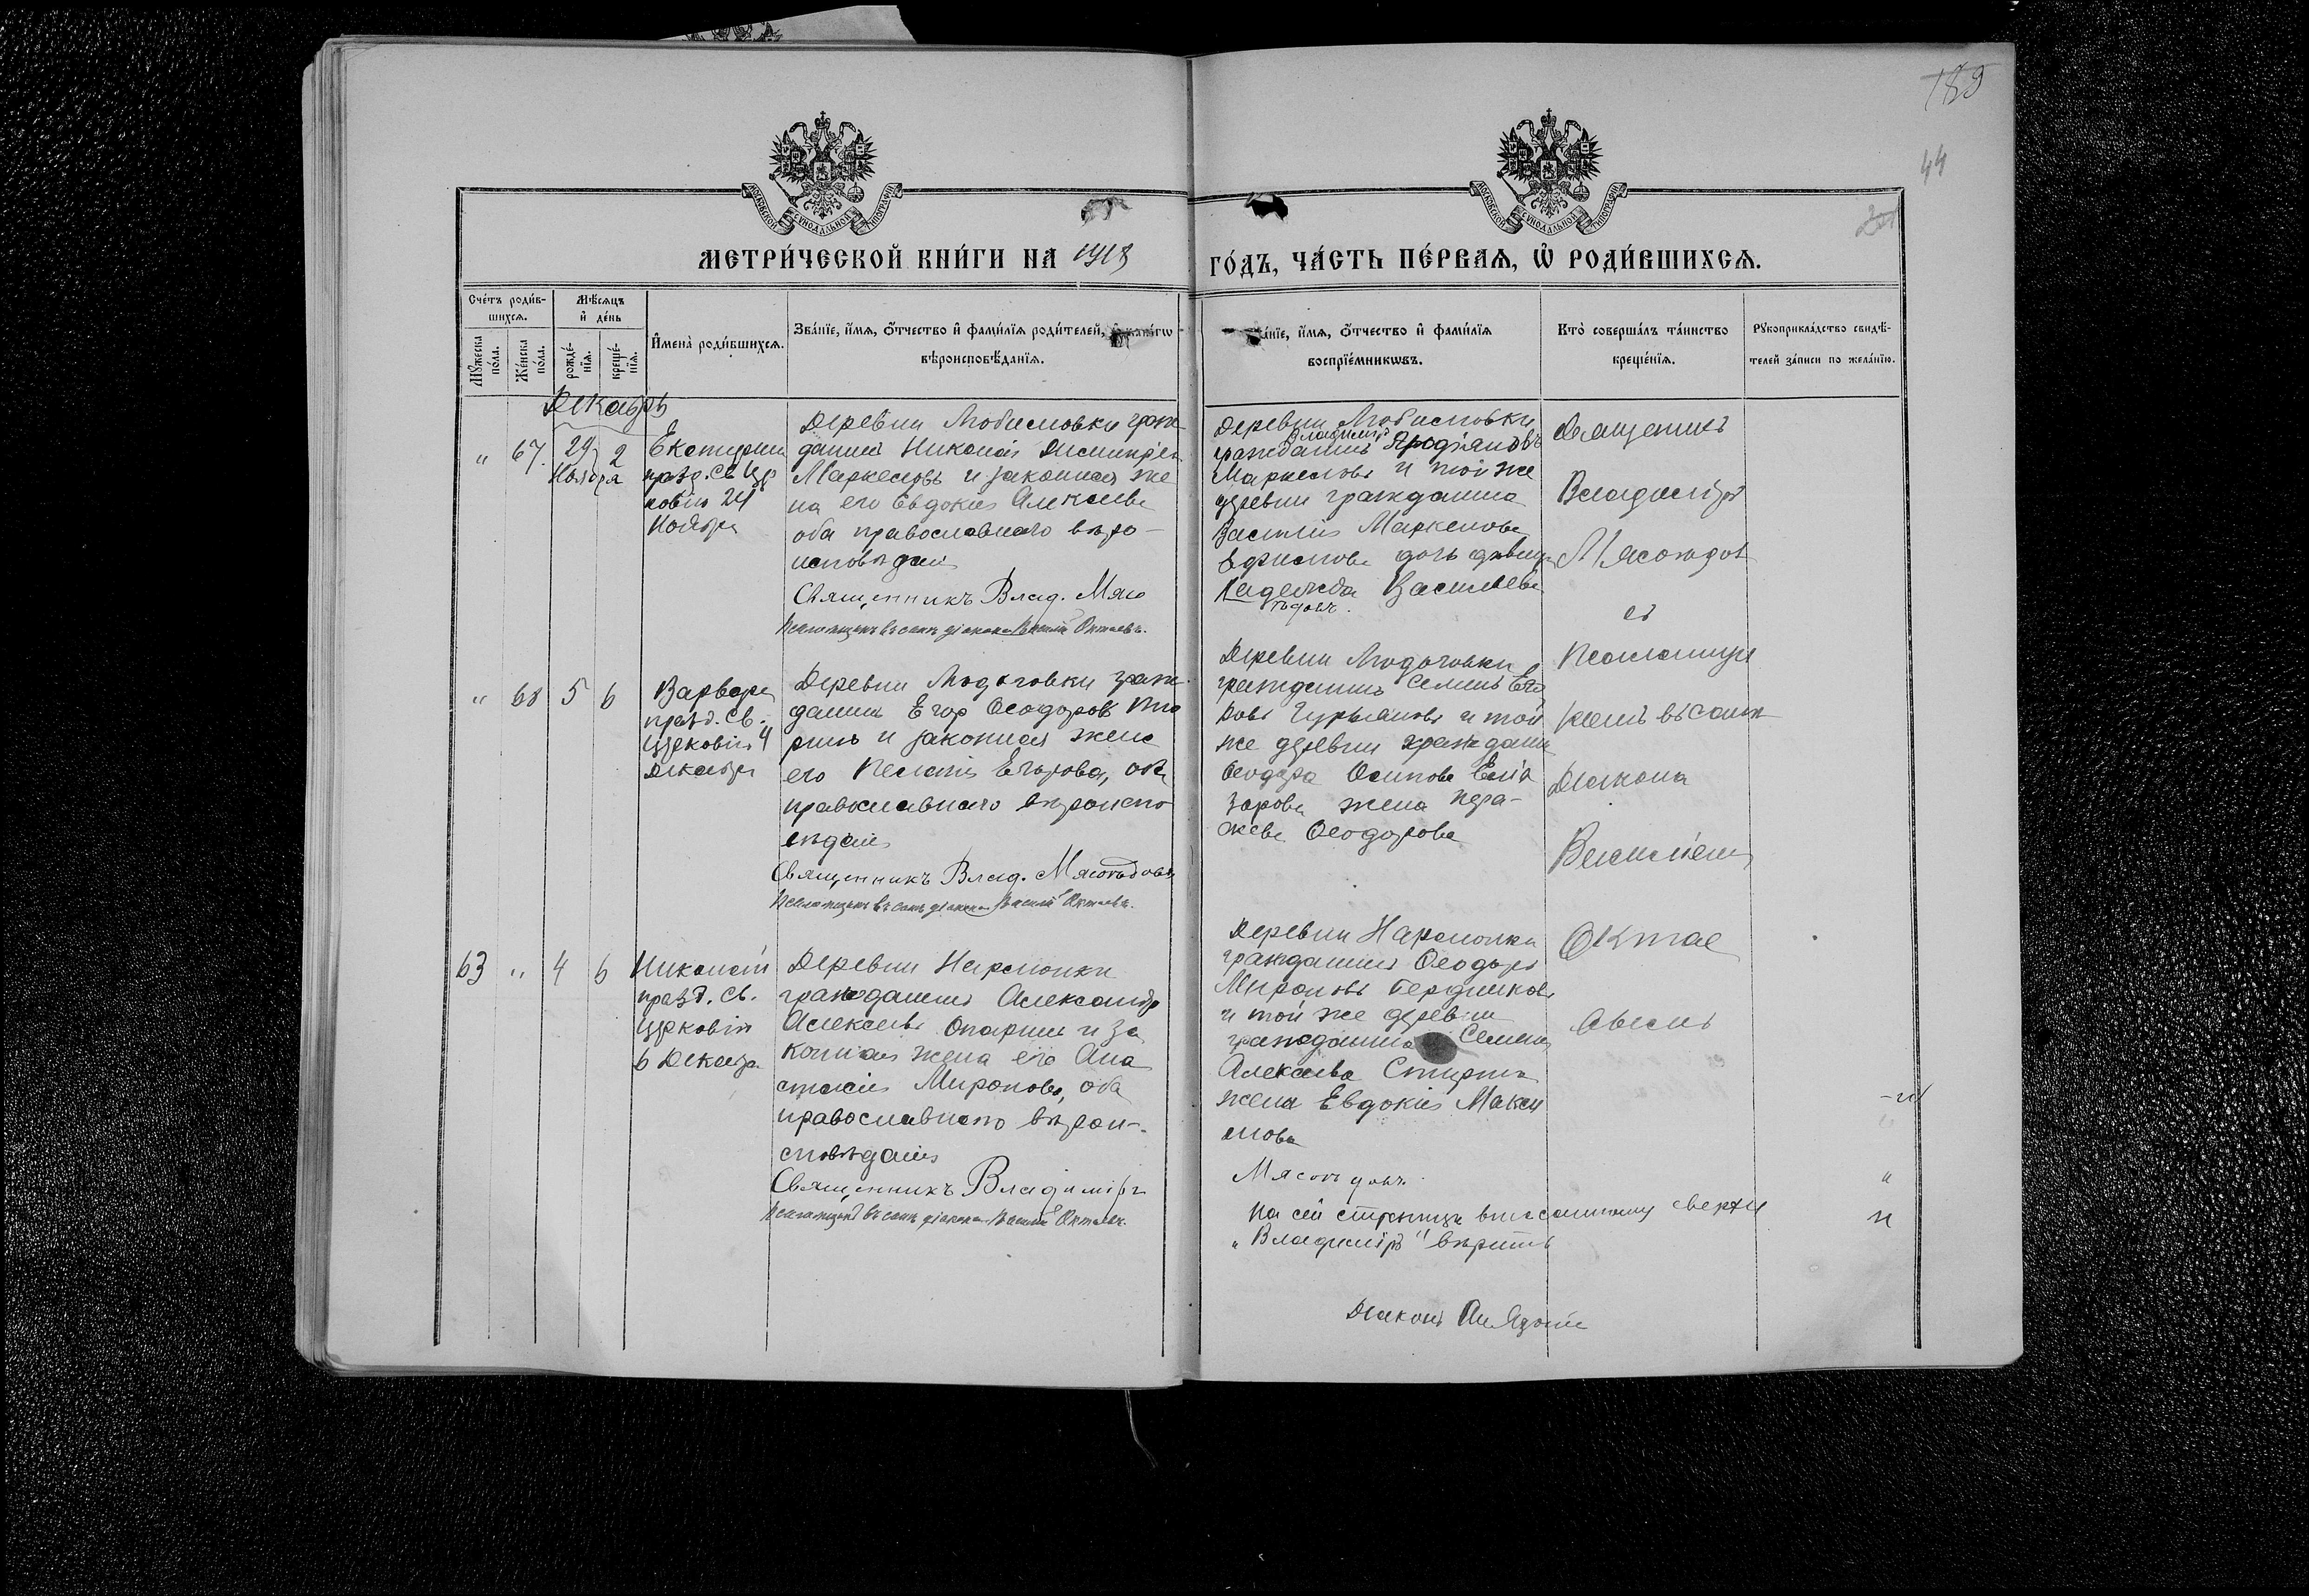 189
44
МОСКОВСКОЙ СѴНОДАЛЬНОЙ ТИПОГРАФІИ
МОСКОВСКОЙ СѴНОДАЛЬНОЙ ТИПОГРАФІИ
МЕТРИ́ЧЕСКОЙ КНИ́ГИ НА 1918
ГО́ДЪ, ЧА́СТЬ ПЕ́РВАѦ, Ѡ҆ РОДИ́ВШИХСѦ.
Сче́тъ роди́в-
шихсѧ.
Мꙋ́жеска по́ла.
Же́нска по́ла.
Мѣ́сѧцъ
и҆ де́нь
рожде́-
нїѧ.
креще́-
нїѧ.
И҆мена̀ роди́вшихсѧ.
Зва́нїе, и҆́мѧ, ѻ҆́тчество и҆ фами́лїѧ роди́телей,
вѣроисповѣ́данїѧ.
Зва́нїе, и҆́мѧ, ѻ҆́тчество и҆ фами́лїѧ
воспрїе́мникѡвъ.
Кто̀ соверша́лъ та́инство
креще́нїѧ.
Рꙋкоприкла́дство свидѣ́-
телей за́писи по жела́нїю.
Декабрь
" 67. 29 2
Ноября
Екатерина
празд. св. Цр
ковію 24
Ноября
Деревни граж
данинъ Николай Димитріевъ
Маркеловъ и законная же
на его Евдокія Алексѣева
оба православнаго вѣро-
исповѣданія
Священникъ Влад. Мясо
Псаломщикъ въ санѣ діакона Василій Октаевъ.
Деревни
Владиміръ
гражданинъ
Маркеловъ и той же
деревни гражданина
Василія Маркелова
дочь дѣвица
Надежда Васильева
ѣдовъ.
Священникъ
Владиміръ
Мясоѣдовъ
съ
Псаломщи
комъ въ санѣ
Діакона
Василіемъ
Октае
вымъ
" 68 5 6
Варвара
празд. св.
Церковію 4
Декабря
Деревни граж
данинъ Егоръ Ѳеодоровъ
ринъ и законная жена
его Пелагія Егорова, оба
православнаго вѣроиспо
вѣданія
Священникъ Влад. Мясоѣдовъ
Псаломщикъ въ санѣ діакона Василій Октаевъ.
Деревни
гражданинъ Семенъ Его
ровъ Гурьяновъ и той
же деревни граждани
Ѳеодора Осипова Елиа
зарова жена Пара-
скева Ѳеодорова
63 " 4 6
Николай
празд. св.
Церковію
6 Декабря
Деревни
гражданинъ Александръ
Алексѣевъ Опаринъ и за
конная жена его Ана
стасія Миронова, оба
православнаго вѣрои-
сповѣданія
Священникъ Владиміръ
Псаломщикъ въ санѣ діакона Василій Октаевъ.
Деревни
гражданинъ Ѳеодоръ
Мироновъ Бердниковъ
и той же деревни
гражданина Семена
Алексѣева
жена Евдокія Макси
мова
Мясоѣдовъ.
На сей страницѣ написанному сверху
"Владиміръ" вѣрить
Діаконъ